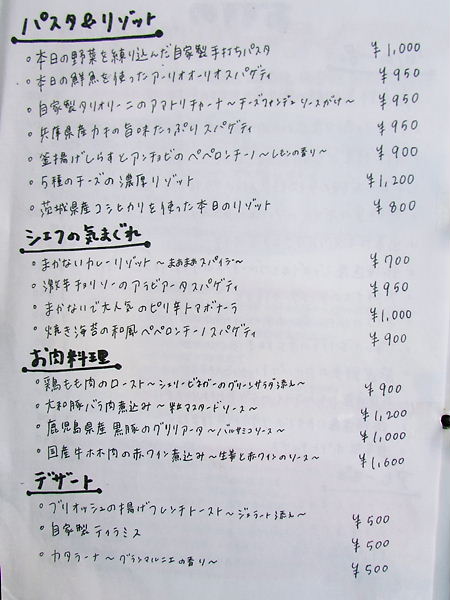 パスタ&リゾット
・本日の野菜を練り込んだ自家製手打ちパスタ ¥1,000
・本日の鮮魚を使ったアーリオオーリオスパゲティ ¥950
・自家製タリオリーニのアマトリチャーナ~チーズフォンデュソースがけ~ ¥950
・兵庫県産カキの旨味たっぷりスパゲティ ¥950
・釜揚げしらすとアンチョビのペペロンチーノ~レモンの香り~ ¥900
・5種のチーズの濃厚リゾット ¥1,200
・茨城県産コシヒカリを使った本日のリゾット ¥800
シェフの気まぐれ
・まかないカレーリゾット~まぁまぁスパイシー~ ¥700
・激辛チョリソーのアラビアータスパゲティ ¥950
・まかないで大人気のピリ辛トマボナーラ ¥1,000
・焼き海苔の和風ペペロンチーノスパゲティ ¥900
お肉料理
・鶏もも肉のロースト~シェリービネガーのグリーンサラダ添え~ ¥900
・大和豚バラ肉煮込み~粒マスタードソース~ ¥1,200
・鹿児島県産黒豚のグリリアータ~バルサミコソース~ ¥1,000
・国産牛ホホ肉の赤ワイン煮込み~生姜と赤ワインのソース~ ¥1,600
デザート
・ブリオッシュの揚げフレンチトースト~ジェラート添え~ ¥500
・自家製ティラミス ¥500
・カタラーナ~グランマルニエの香り~ ¥500